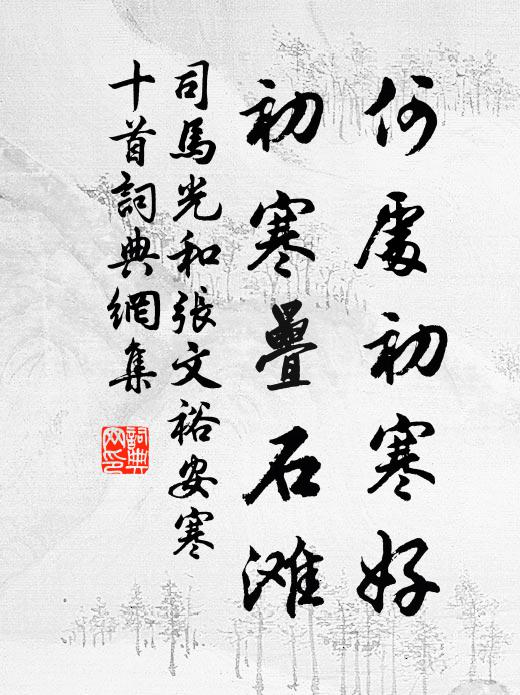 何處初寒好
初寒疊石滩
司馬光和張文裕安寒
十首詞典網集
詞典
网印